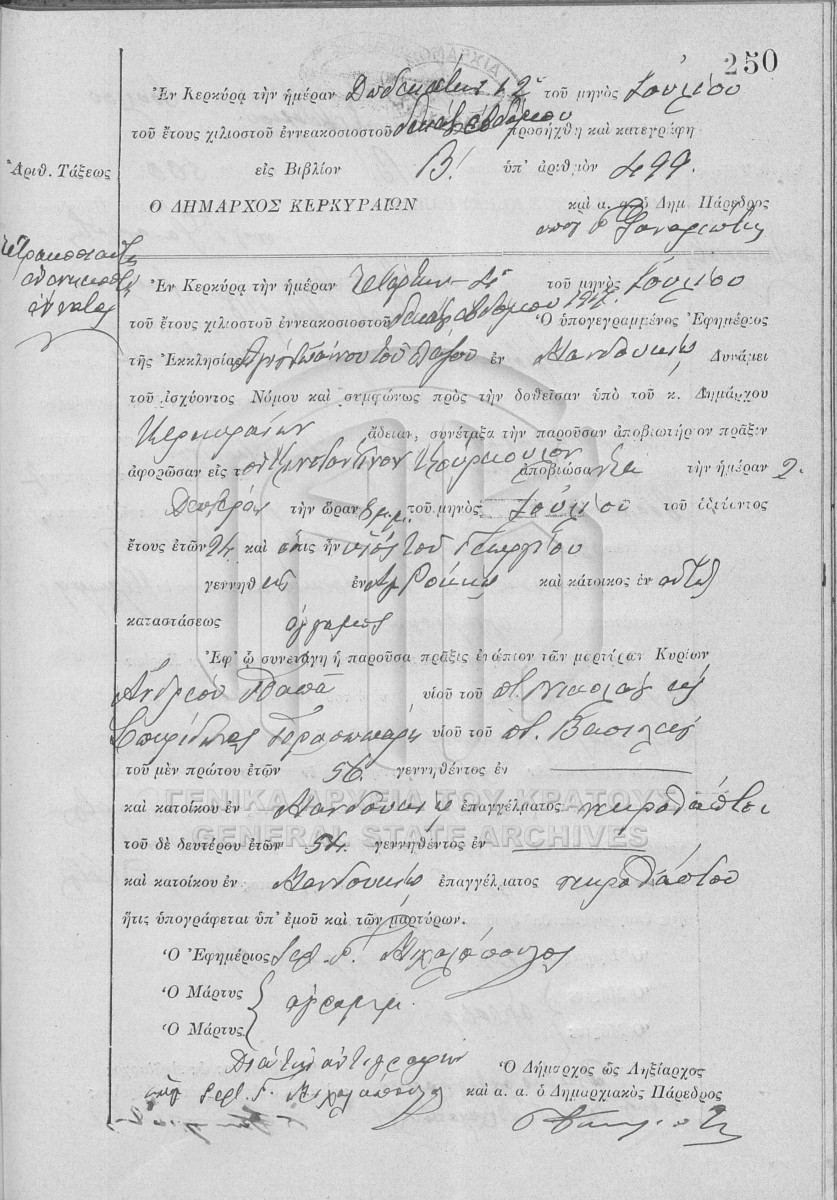 250
Ἐν Κερκύρᾳ τὴν ἡμέραν Δωδεκάτην 12 τοῦ μηνὸς Ἰουλίου
τοῦ ἔτους χιλιοστοῦ ἐννεακοσιοστοῦ δεκάτου ἑβδόμου προσήχθη καὶ κατεγράφη
Ἀριθ. Τάξεως εἰς Βιβλίον Β! ὑπ' ἀριθμὸν 499.
Ὁ ΔΗΜΑΡΧΟΣ ΚΕΡΚΥΡΑΙΩΝ καὶ α. α. ὁ Δημ. Πάρεδρος
Ἐν Κερκύρᾳ τὴν ἡμέραν Τετάρτην 4 τοῦ μηνὸς Ἰουλίου
τοῦ ἔτους χιλιοστοῦ ἐννεακοσιοστοῦ δεκάτου ἑβδόμου 1917. Ὁ ὑπογεγραμμένος Ἐφημέριος
τῆς Ἐκκλησίας ἐν Μανδουκίῳ Δυνάμει
τοῦ ἰσχύοντος Νόμου καὶ συμφώνως πρὸς τὴν δοθεῖσαν ὑπὸ τοῦ κ. Δημάρχου
Κερκυραίων ἄδειαν, συνέταξα τὴν παροῦσαν ἀποβιωτήριον πρᾶξιν
ἀφορῶσαν εἰς τὸν Κωνσταντῖνον ἀποβιώσαντα τὴν ἡμέραν 2.
Δευτέραν τὴν ὥραν 8 μ.μ. τοῦ μηνὸς Ἰουλίου τοῦ ἐξιόντος
ἔτους ἐτῶν 24 καὶ ὅστις ἦν υἱὸς τοῦ Γεωργίου
γεννηθεὶς ἐν καὶ κάτοικος ἐν
καταστάσεως ἄγαμος
Ἐφ' ᾧ συνετάγη ἡ παροῦσα πρᾶξις ἐνώπιον τῶν μαρτύρων Κυρίων
Ἀνδρέου Παπᾶ υἱοῦ τοῦ π. Νικολάου καὶ
Σπυρίδωνος υἱοῦ τοῦ π. Βασιλείου
τοῦ μὲν πρώτου ἐτῶν 56 γεννηθέντος ἐν
καὶ κατοίκου ἐν Μανδουκίῳ ἐπαγγέλματος
ΓΕΝΙΚΑ ΑΡΧΕΙΑ ΤΟΥ ΚΡΑΤΟΥΣ
GENERAL STATE ARCHIVES
τοῦ δὲ δευτέρου ἐτῶν 54. γεννηθέντος ἐν
καὶ κατοίκου ἐν Μανδουκίῳ ἐπαγγέλματος
ἥτις ὑπογράφεται ὑπ' ἐμοῦ καὶ τῶν μαρτύρων.
Ὁ Ἐφημέριος Γ. Μιχαλόπουλος
Ὁ Μάρτυς
Ὁ Μάρτυς
Διὰ τὴν ἀντιγραφὴν Ὁ Δήμαρχος ὡς Ληξίαρχος
Γ. Μιχαλόπουλος καὶ α. α. ὁ Δημαρχιακὸς Πάρεδρος